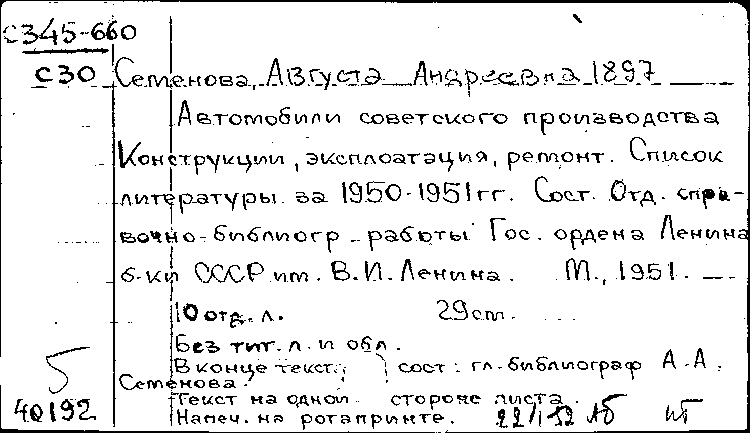 С345-660
С30 Семенова, Августа Андреевна 1897
Автомобили советского производства
Конструкции, эксплоатация, ремонт. Список
литературы за 1950-1951гг. Сост. Отд. спра-
вочно-библиогр. работы Гос. ордена Ленина
б-ки СССР им. В.И. Ленина. М., 1951.
10 отд. л. 29 cm.
Без тит. л. и обл.
В конце текст: сост: гл. библиограф А. А.
Семенова.
5
Текст на одной стороне листа.
40192 Напеч. на ротапринте. 22/I-52